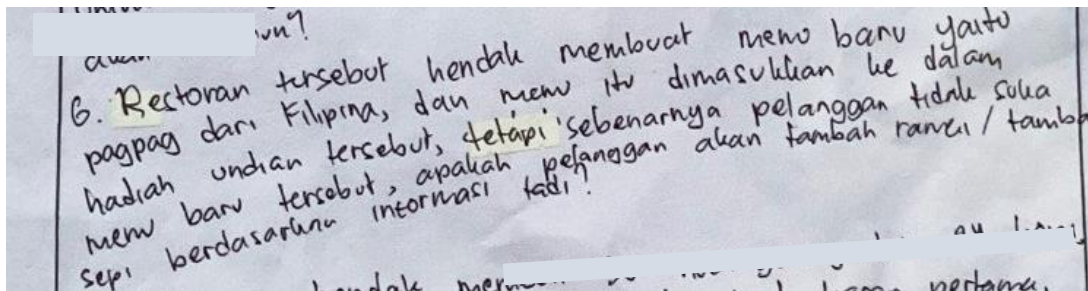 6. Restoran tersebut hendak membuat menu baru yaitu
pagpag dari Filipina, dan menu itu dimasukkan ke dalam
hadiah undian tersebut, tetapi sebenarnya pelanggan tidak suka
menu baru tersebut, apakah pelanggan akan tambah ramai / tamba
sepi berdasarkan informasi tadi?
pertama,